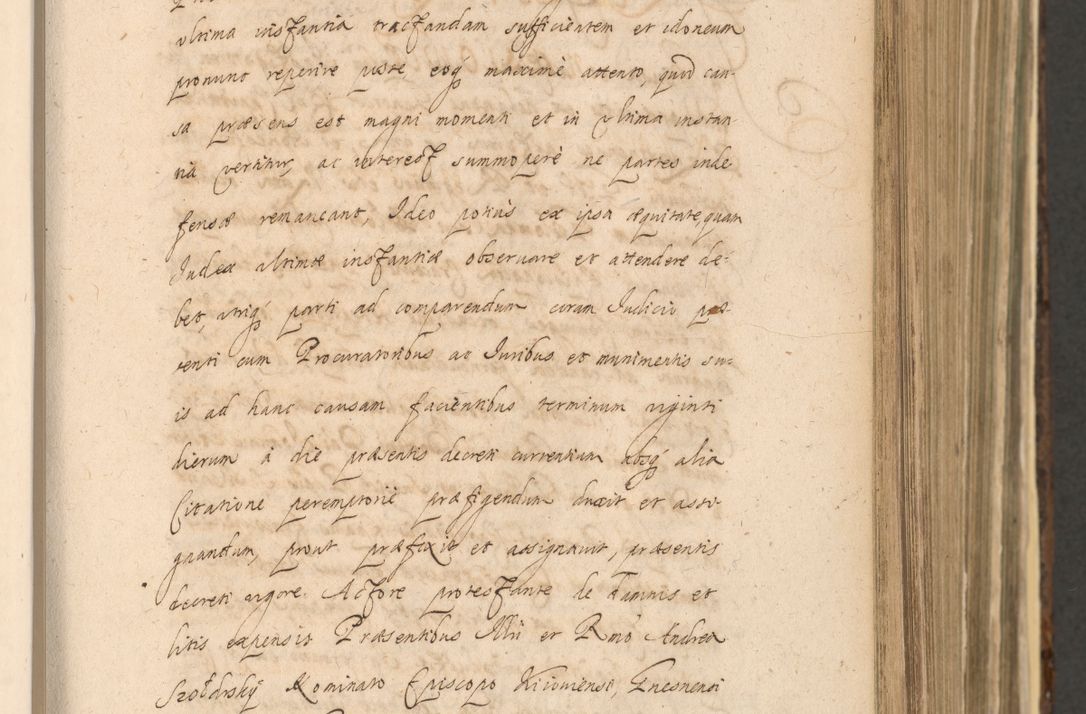 ultima instantia tractandam sufficientem et idoneum
pronunc reperire potest, eoq́ maximè attento, quod cau-
sa præsens est magni momenti et in ultima instan-
tia vertitur, ac interest summoperè ne partes inde
fensæ remaneant, Ideo potius ex ipsa æquitate, quam
Iudex ultimæ instantiæ observare et attendere de-
bet, utriq́ parti ad comparendum coram Iudicio præ-
senti cum Procuratoribus ac Iuribus et munimentis su-
is ad hanc causam facientibus terminum viginti
dierum à die præsentis decreti currentium absq́ alia
Citatione peremptoriè præfigendum duxit et assi-
gnandum, prout præfixit et assignavit, præsentis
decreti vigore. Actore protestante de damnis et
litis expensis Præsentibus Illri et Rmo Andrea
Szołdrsky Nominato Episcopo Kiiouiensi, Gnesnensi